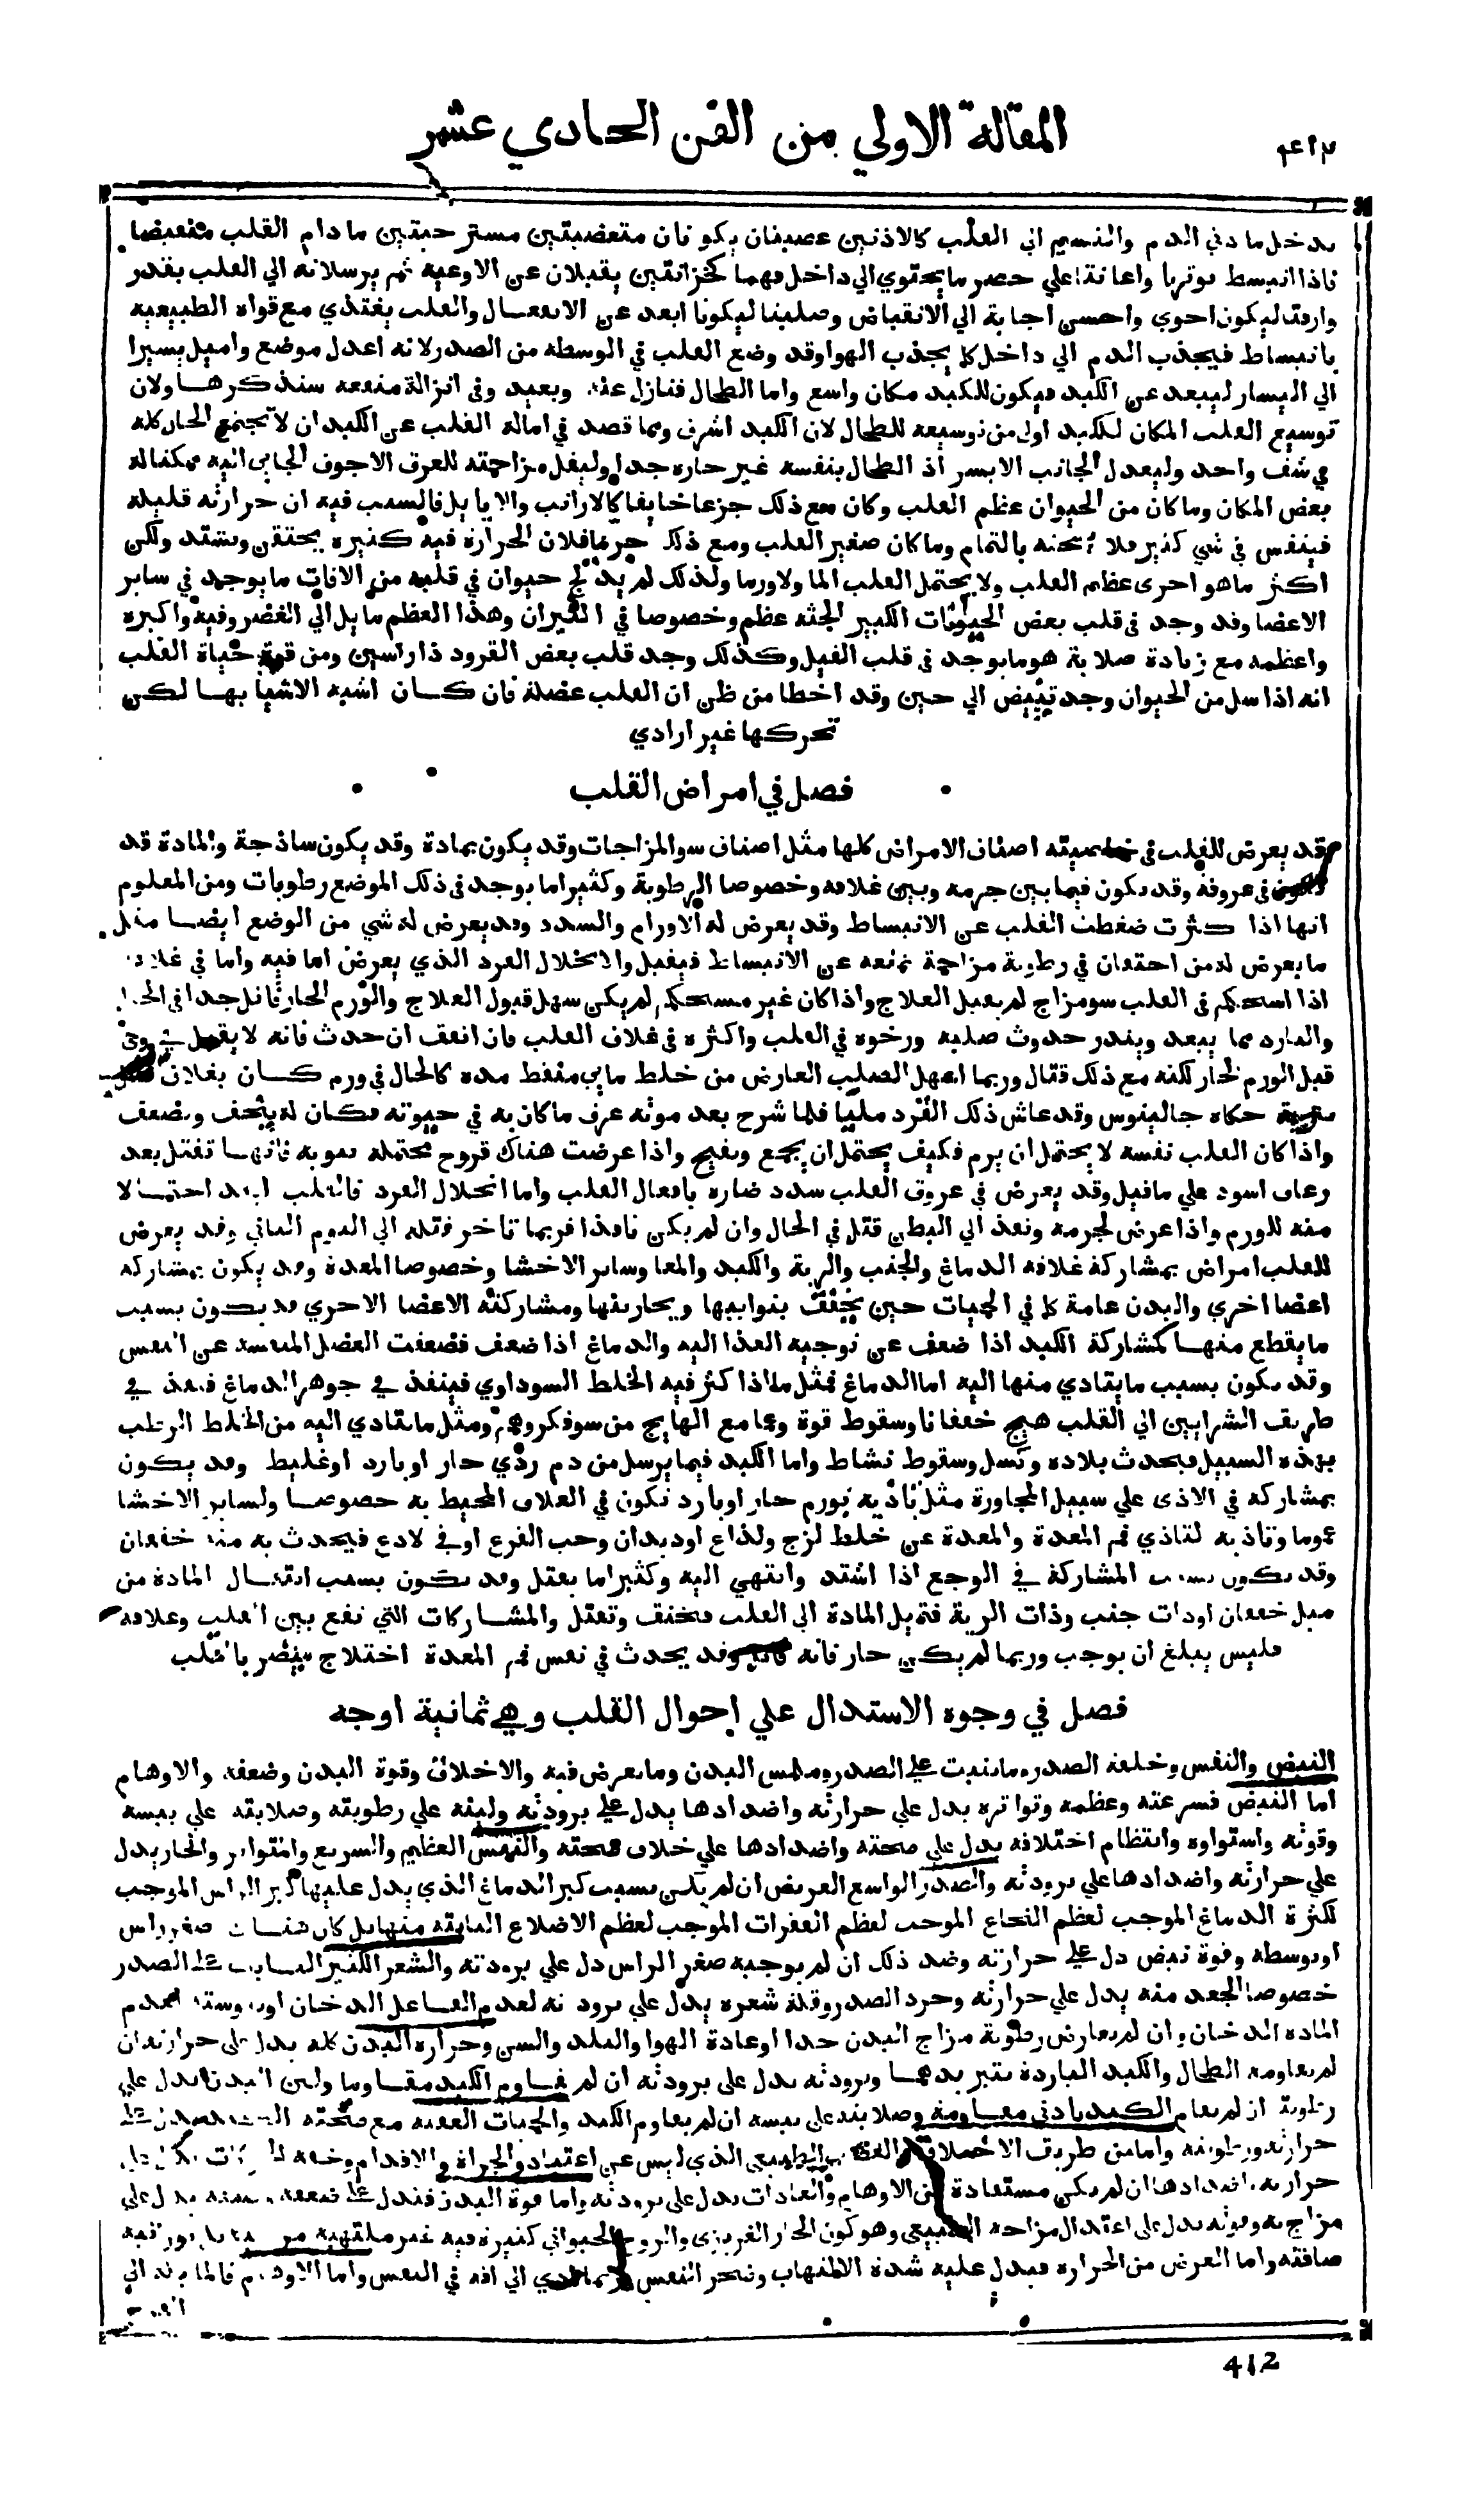 المقالة الاولي من الفن الحادي عشر
يدخل ما دفي الدم والنسيم الي القلب كالاذنين عصبيتان يكونان متغضنتين مسترخيتين ما دام القلب منقبضا
فاذا انبسط توترتا واعانتا علي حصر ما يحتوي الي داخل فهما كخزانتين يقبلان عن الاوعية ثم يرسلانه الي القلب بقدر
وارقتا ليكون احوي واحسن اجابة الي الانقباض وصلبتا ليكونا ابعد عن الانفعال والقلب يغتذي مع قواه الطبيعية
بانبساط فيجذب الدم الي داخل كما يجذب الهوا وقد وضع القلب في الوسطه من الصدر لانه اعدل موضع واميل يسيرا
الي اليسار ليبعد عن الكبد فيكون للكبد مكان واسع واما الطحال فنازل عنه وبعيد وفي انزالة منفعه سنذكرها ولان
توسيع القلب المكان للكبد اولي من توسيعه للطحال لان الكبد اشرف ومما قصد في امالة القلب عن الكبد ان لا يجتمع الحار كله
في شق واحد وليعدل الجانب الايسر اذ الطحال بنفسه غير حاره جدا وليقل مزاحمته للعرق الاجوف الجاني اليه ممكنا له
بعض المكان وما كان من الحيوان عظم القلب وكان مع ذلك جزعا خايفا كالارانب والايايل فالسبب فيه ان حرارته قليله
فينفس في شي كثير فلا يسخنه بالتمام وما كان صغير القلب ومع ذلك جريا فلان الحرارة فيه كثيره يحتقن ويشتد ولكن
اكثر ما هو اجرى عظم القلب ولا يحتمل القلب الما ولا ورما ولذلك لم يذبح حيوان في قلبه من الافات ما يوجد في ساير
الاعضا وقد وجد في قلب بعض الحيوانات الكبير الجثه عظم وخصوصا في الثيران وهذا العظم مايل الي الغضروفيه واكبره
واعظمه مع زيادة صلابة هو ما يوجد في قلب الفيل وكذلك وجد قلب بعض القرود ذا راسين ومن قوة حياة القلب
انه اذا سل من الحيوان وجد ينبض الي حين وقد اخطا من ظن ان القلب عضلة فان كان اشبه الاشيا بها لكن
تحركها غير ارادي
فصل في امراض القلب
قد يعرض للقلب في خاصيته اصناف الامراض كلها مثل اصناف سو المزاجات وقد يكون بمادة وقد يكون ساذجة والمادة قد
تكون في عروقه وقد يكون فيما بين جرمه وبين غلافه وخصوصا الرطوبة وكثيرا ما يوجد في ذلك الموضع رطوبات ومن المعلوم
انها اذا كثرت ضغطت القلب عن الانبساط وقد يعرض له الاورام والسدد وقد يعرض له شي من الوضع ايضا مثل
ما يعرض له من احتقان في رطوبة مزاحمة تمنعه عن الانبساط فيقبل والانحلال الفرد الذي يعرض اما فيه واما في غلافه
اذا استحكم في القلب سو مزاج لم يقبل العلاج واذا كان غير مستحكم لم يكن سهل قبول العلاج والورم الحار قاتل جدا في الحال
والبارد مما يبعد ويندر حدوث صلبه ورخوه في القلب واكثره في غلاف القلب فان اتفق ان حدث فانه لا يقتل
قبل الورم الحار لكنه مع ذلك قتال وربما امهل الصلب العارض من خلط مايي منفط مده كالحال في ورم كان بغلاف
حكاه جالينوس وقد عاش ذلك القرد مليا فلما شرح بعد موته عرف ما كان به في حيوته فكان له ينحف ويضعف
واذا كان القلب نفسه لا يحتمل ان يرم فكيف يحتمل ان يجمع ويفيح واذا عرضت هناك قروح محتمله فانها تقتل بعد
رعاف اسود علي ما قيل وقد يعرض في عروق القلب سدد ضاره بافعال القلب واما انحلال الفرد فالقلب ابعد احتمالا
منه للورم واذا عرض لجرمه ونفذ الي البطن قتل في الحال وان لم يكن نافذا فربما تاخر قتله الي اليوم الثاني وقد يعرض
للقلب امراض بمشاركة غلافه الدماغ والجنب والرية والكبد والمعا وساير الاحشا وخصوصا المعدة وقد يكون بمشاركة
اعضا اخري والبدن عامة كما في الحميات حين بنوايبها وبحارينها ومشاركته الاعضا الاخري قد يكون بسبب
ما يقطع منها كمشاركة الكبد اذا ضعف عن توجيه الغذا اليه والدماغ اذا ضعف فضعفت العضل المنفسه عن النفس
وقد يكون بسبب ما يتادي منها اليه اما الدماغ فمثل ما اذا كثر فيه الخلط السوداوي فينفذ في جوهر الدماغ فنفذ في
طريق الشرايين الي القلب هيج خفقانا وسقوط قوة وغما مع الهايج من سو فكر وهم ومثل ما يتادي اليه من الخلط الرطب
بهذه السبيل فيحدث بلاده وكسل وسقوط نشاط واما الكبد فيما يرسل من دم ردي حار او بارد او غليظ وقد يكون
بمشاركه في الاذى علي سبيل المجاورة مثل تاذيه بورم حار او بارد تكون في الغلاف المحيط به خصوصا ولساير الاحشا
عموما وتاذيه لتاذي فم المعدة والمعدة عن خلط لزج ولذاع او ديدان وحب القرع او في لاذع فيحدث به منه خفقان
وقد يكون بسبب المشاركة في الوجع اذا اشتد وانتهي اليه وكثيرا ما يقتل وقد يكون بسبب انتقال المادة من
مثل خفقان او ذات جنب وذات الرية فتميل المادة الي القلب فتخنق وتقتل والمشاركات التي تقع بين القلب وغلافه
فليس يبلغ ان يوجب وربما لم يكن حار فانه وقد يحدث في نفس فم المعدة اختلاج يتضر بالقلب
فصل في وجوه الاستدال علي احوال القلب وهي ثمانية اوجه
النبض والنفس وخلقة الصدر وما ينبت علي الصدر وملمس البدن وما يعرض فيه والاخلاق وقوة البدن وضعفه والاوهام
اما النبض فسرعته وعظمه وتواتره يدل علي حرارته واضدادها يدل علي برودته ولينه علي رطوبته وصلابته علي يبسه
وقوته واستواوه وانتظام اختلافه يدل علي صحته واضدادها علي خلاف صحته والنفس العظيم والسريع والمتواتر والحار يدل
علي حرارته واضدادها علي برودته والصدر الواسع العريض ان لم يكن بسبب كبر الدماغ الذي يدل عليها كبر الراس الموجب
لكثرة الدماغ الموجب لعظم النخاع الموجب لعظم الفقرات الموجب لعظم الاضلاع النابته منها بل كان هناك صغر راس
او توسطه وقوة نبض دل علي حرارته وضد ذلك ان لم يوجبه صغر الراس دل علي برودته والشعر الكثير النابت علي الصدر
خصوصا الجعد منه يدل علي حرارته وجرد الصدر وقلة شعره يدل علي برودته لعدم الفاعل الدخان او يبوسته لعدم
الماده الدخان وان لم يعارض رطوبة مزاج البدن جدا او عادة الهوا والبلد والسن وحراره البدن كله يدل علي حرارته ان
لم يقاومه الطحال والكبد الباردة بتبريدهما وبرودته يدل علي برودته ان لم يقاوم الكبد مقاوما ولين البدن يدل علي
رطوبته ان لم يقاوم الكبد بادني مقاومه وصلابته علي يبسه ان لم يقاوم الكبد والحميات العفنه مع صحة
حرارته ورطوبته واما من طريق الاخلاق الطبيعي الذي ليس عن اعتقاد والجراة والاقدام وخفة
حرارته واضدادها ان لم يكن مستفادة من الاوهام والعادات يدل علي برودته واما قوة البدن فتدل علي ضعفه يدل علي
مزاج به وقوته يدل علي اعتدال مزاجه الطبيعي وهو كون الحار الغريزي والروح الحيواني كثيرة فيه غير ملتهبه نورانية
صافته واما العرض من الحراره فيدل عليه شدة الالتهاب وضجر النفس الي افه في النفس واما الاوهام فالمايله الي
412